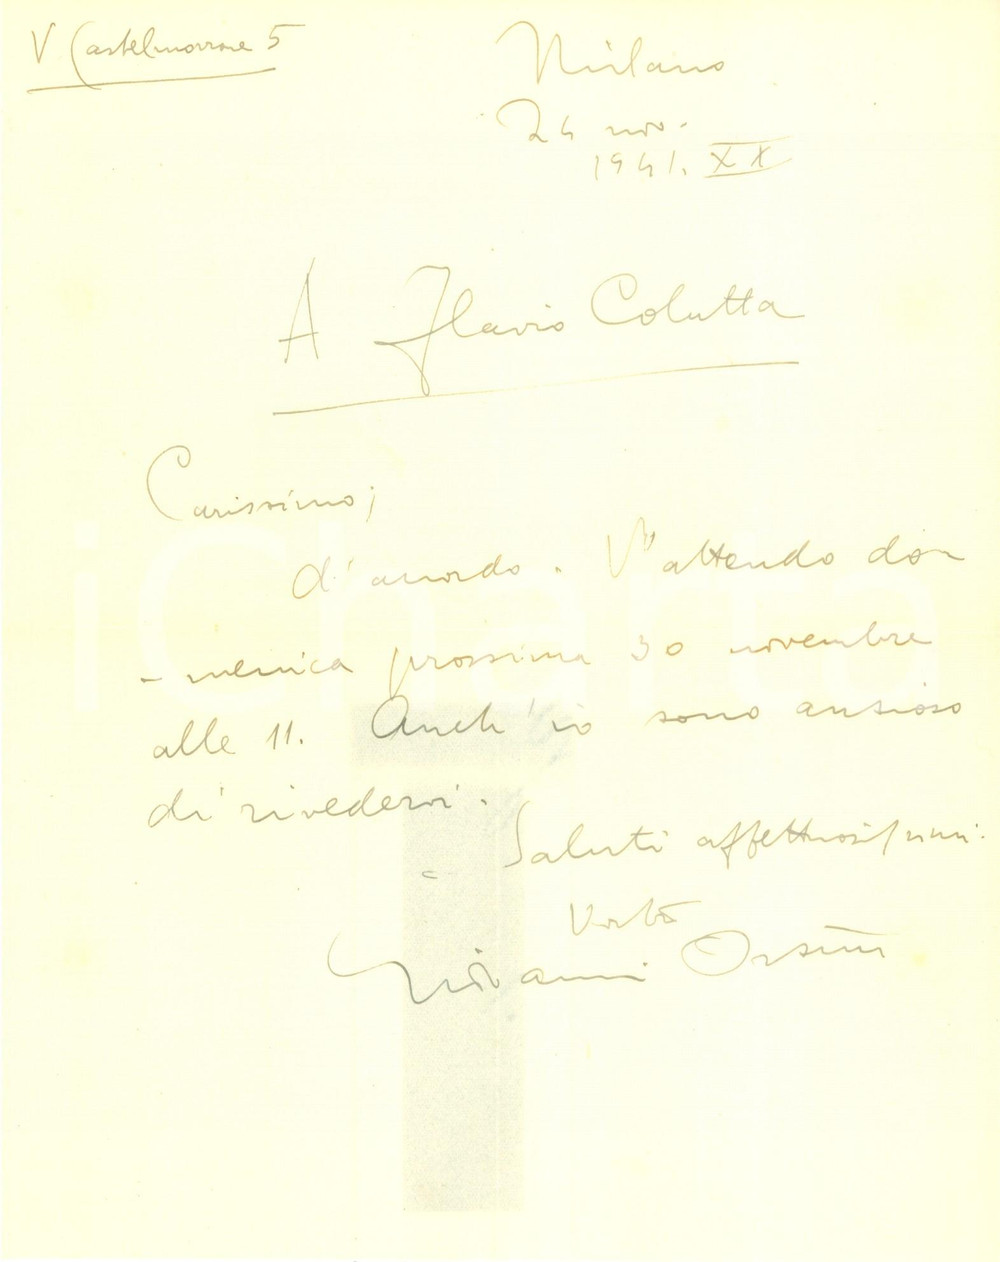 V. Castelmorrone 5
Milano
24 nov.
1941. XX
A Flavio Colutta
Carissimo;
d'accordo. V'attendo do-
-menica prossima 30 novembre
alle 11. Anch'io sono ansioso
di rivedervi.
Saluti affettuosissimi.
Vostro
Giovanni Orsini
iCharta